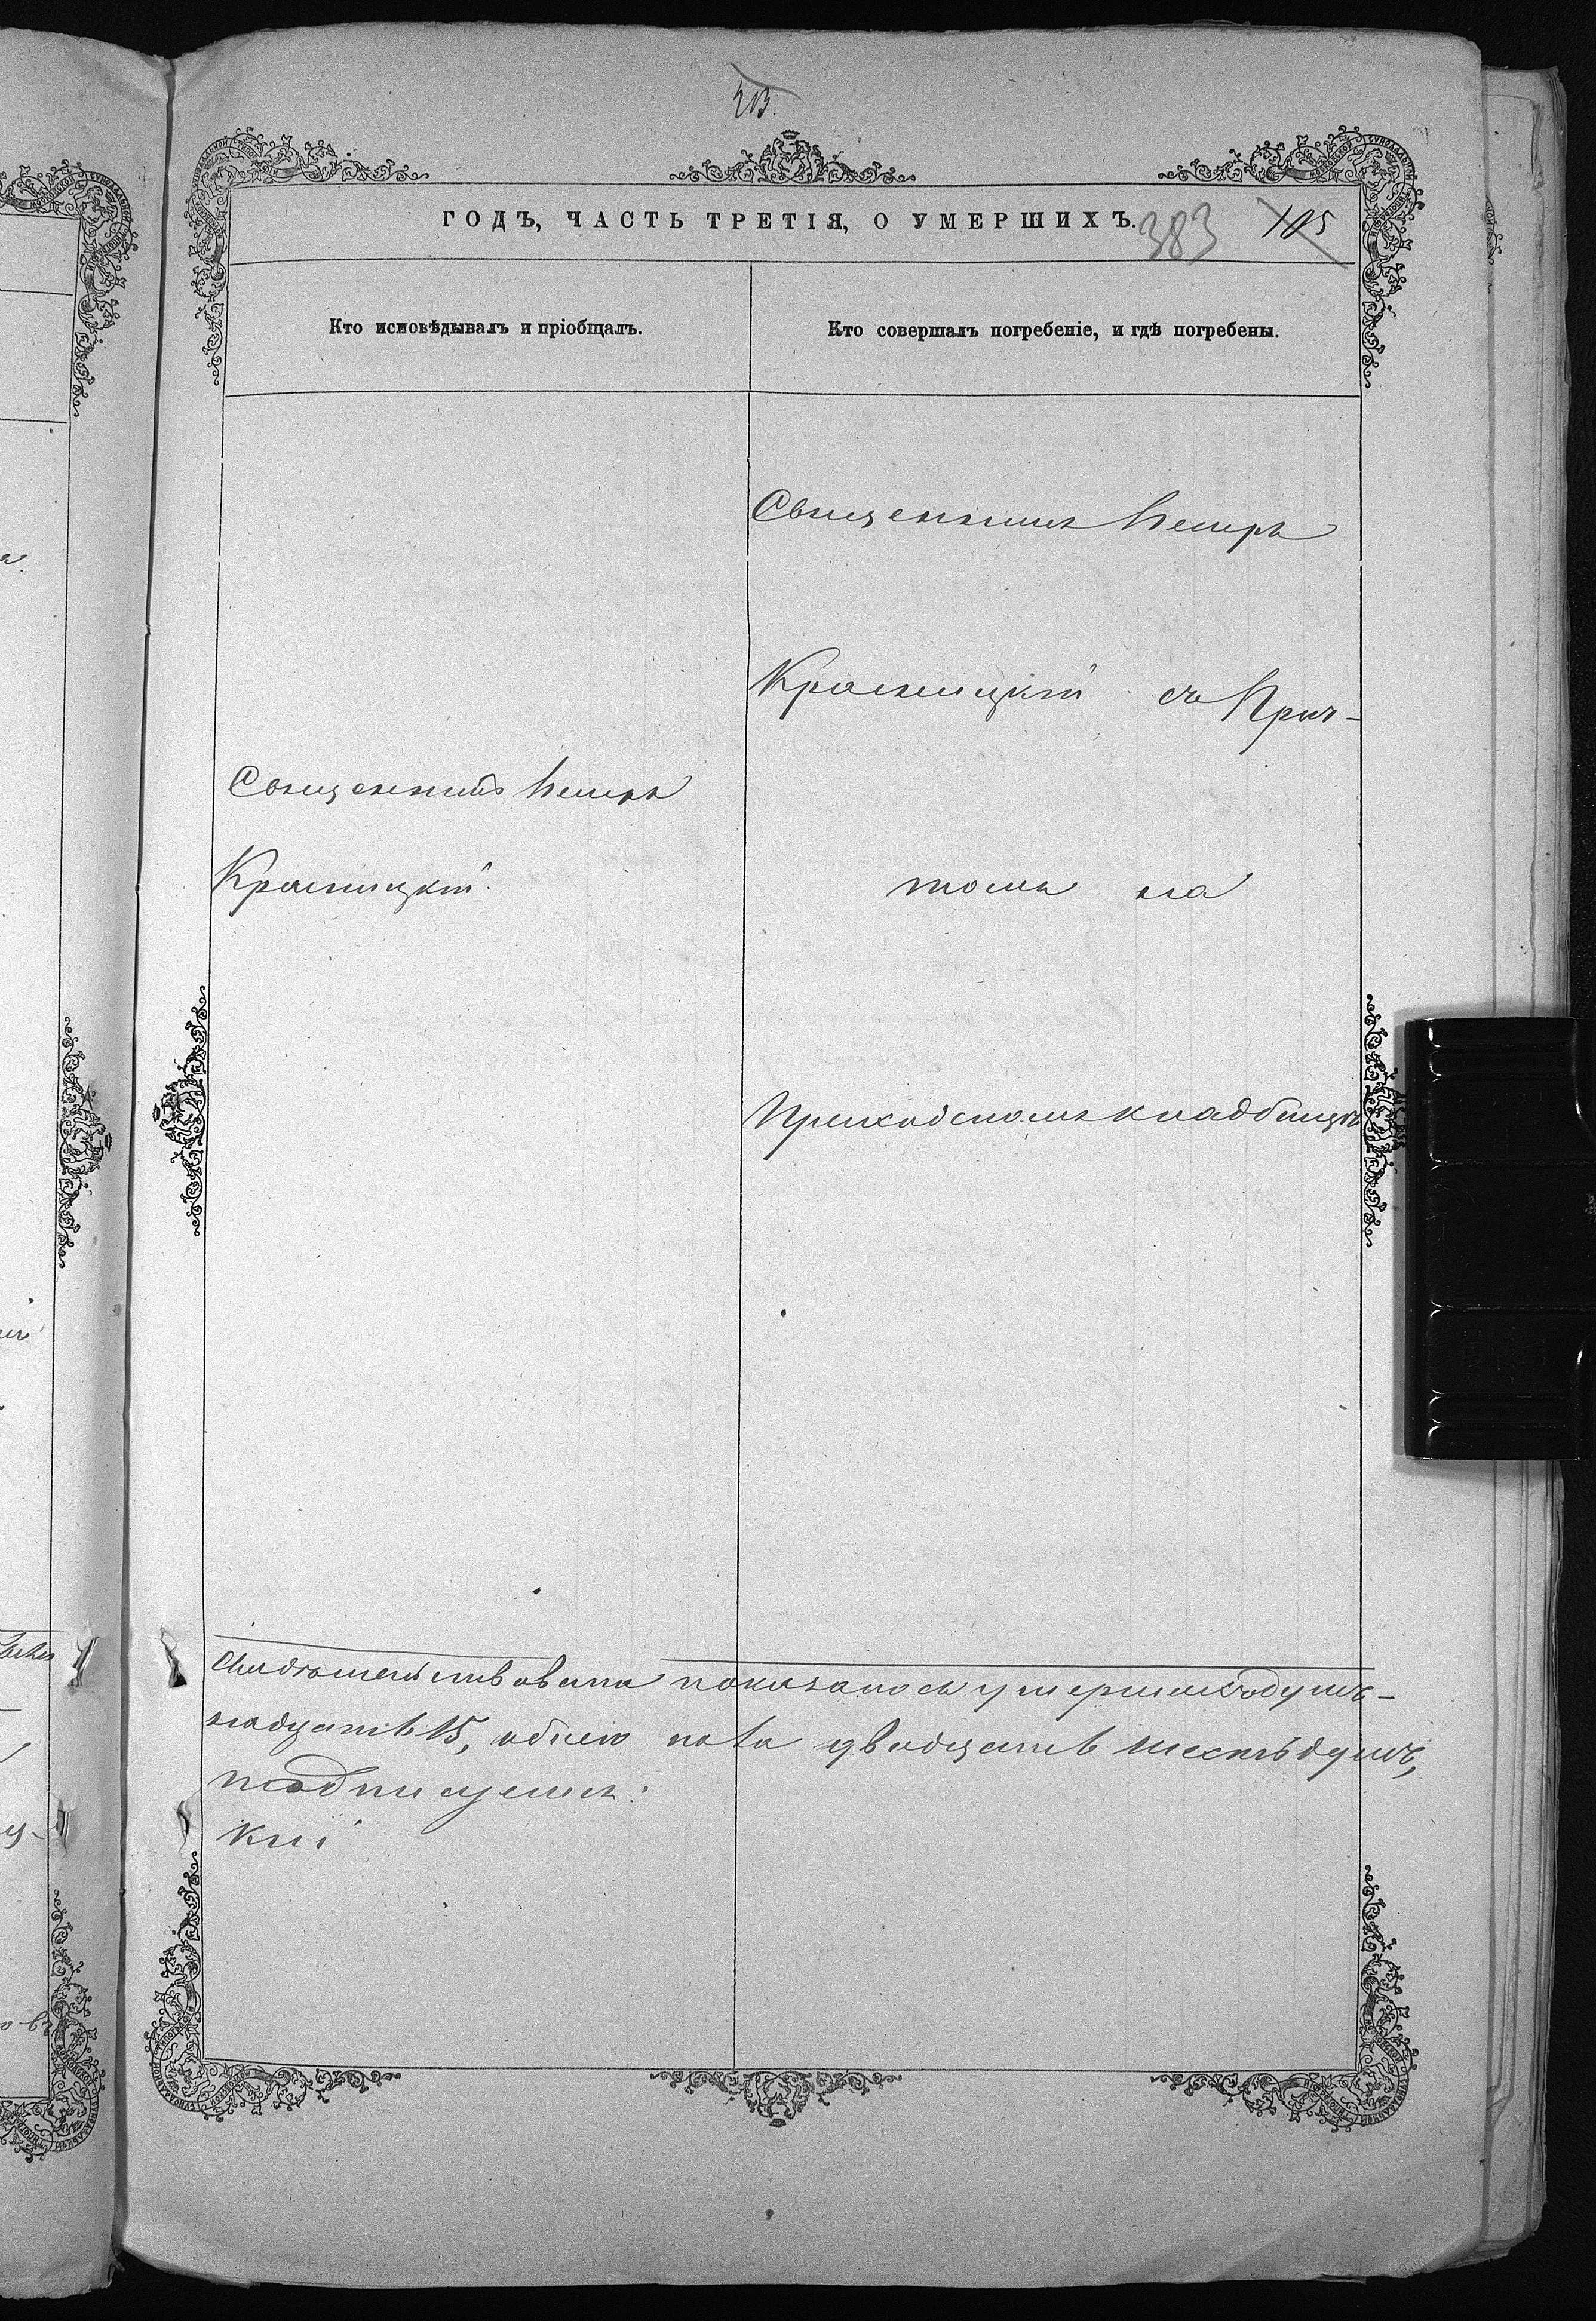 213.
ГОДЪ, ЧАСТЬ ТРЕТІЯ, О УМЕРШИХЪ. 383 105
Кто исповѣдывалъ и пріобщалъ.
Кто совершалъ погребеніе, и гдѣ погребены.
Священникъ Петръ
Красницкій
Священникъ Петръ
Красницкій съ Прич-
томъ на
Приходскомъ кладбищѣ
показано умершихъ душъ-
надцать 15, обоего пола двадцать шесть душъ,
подписуемся:
кій